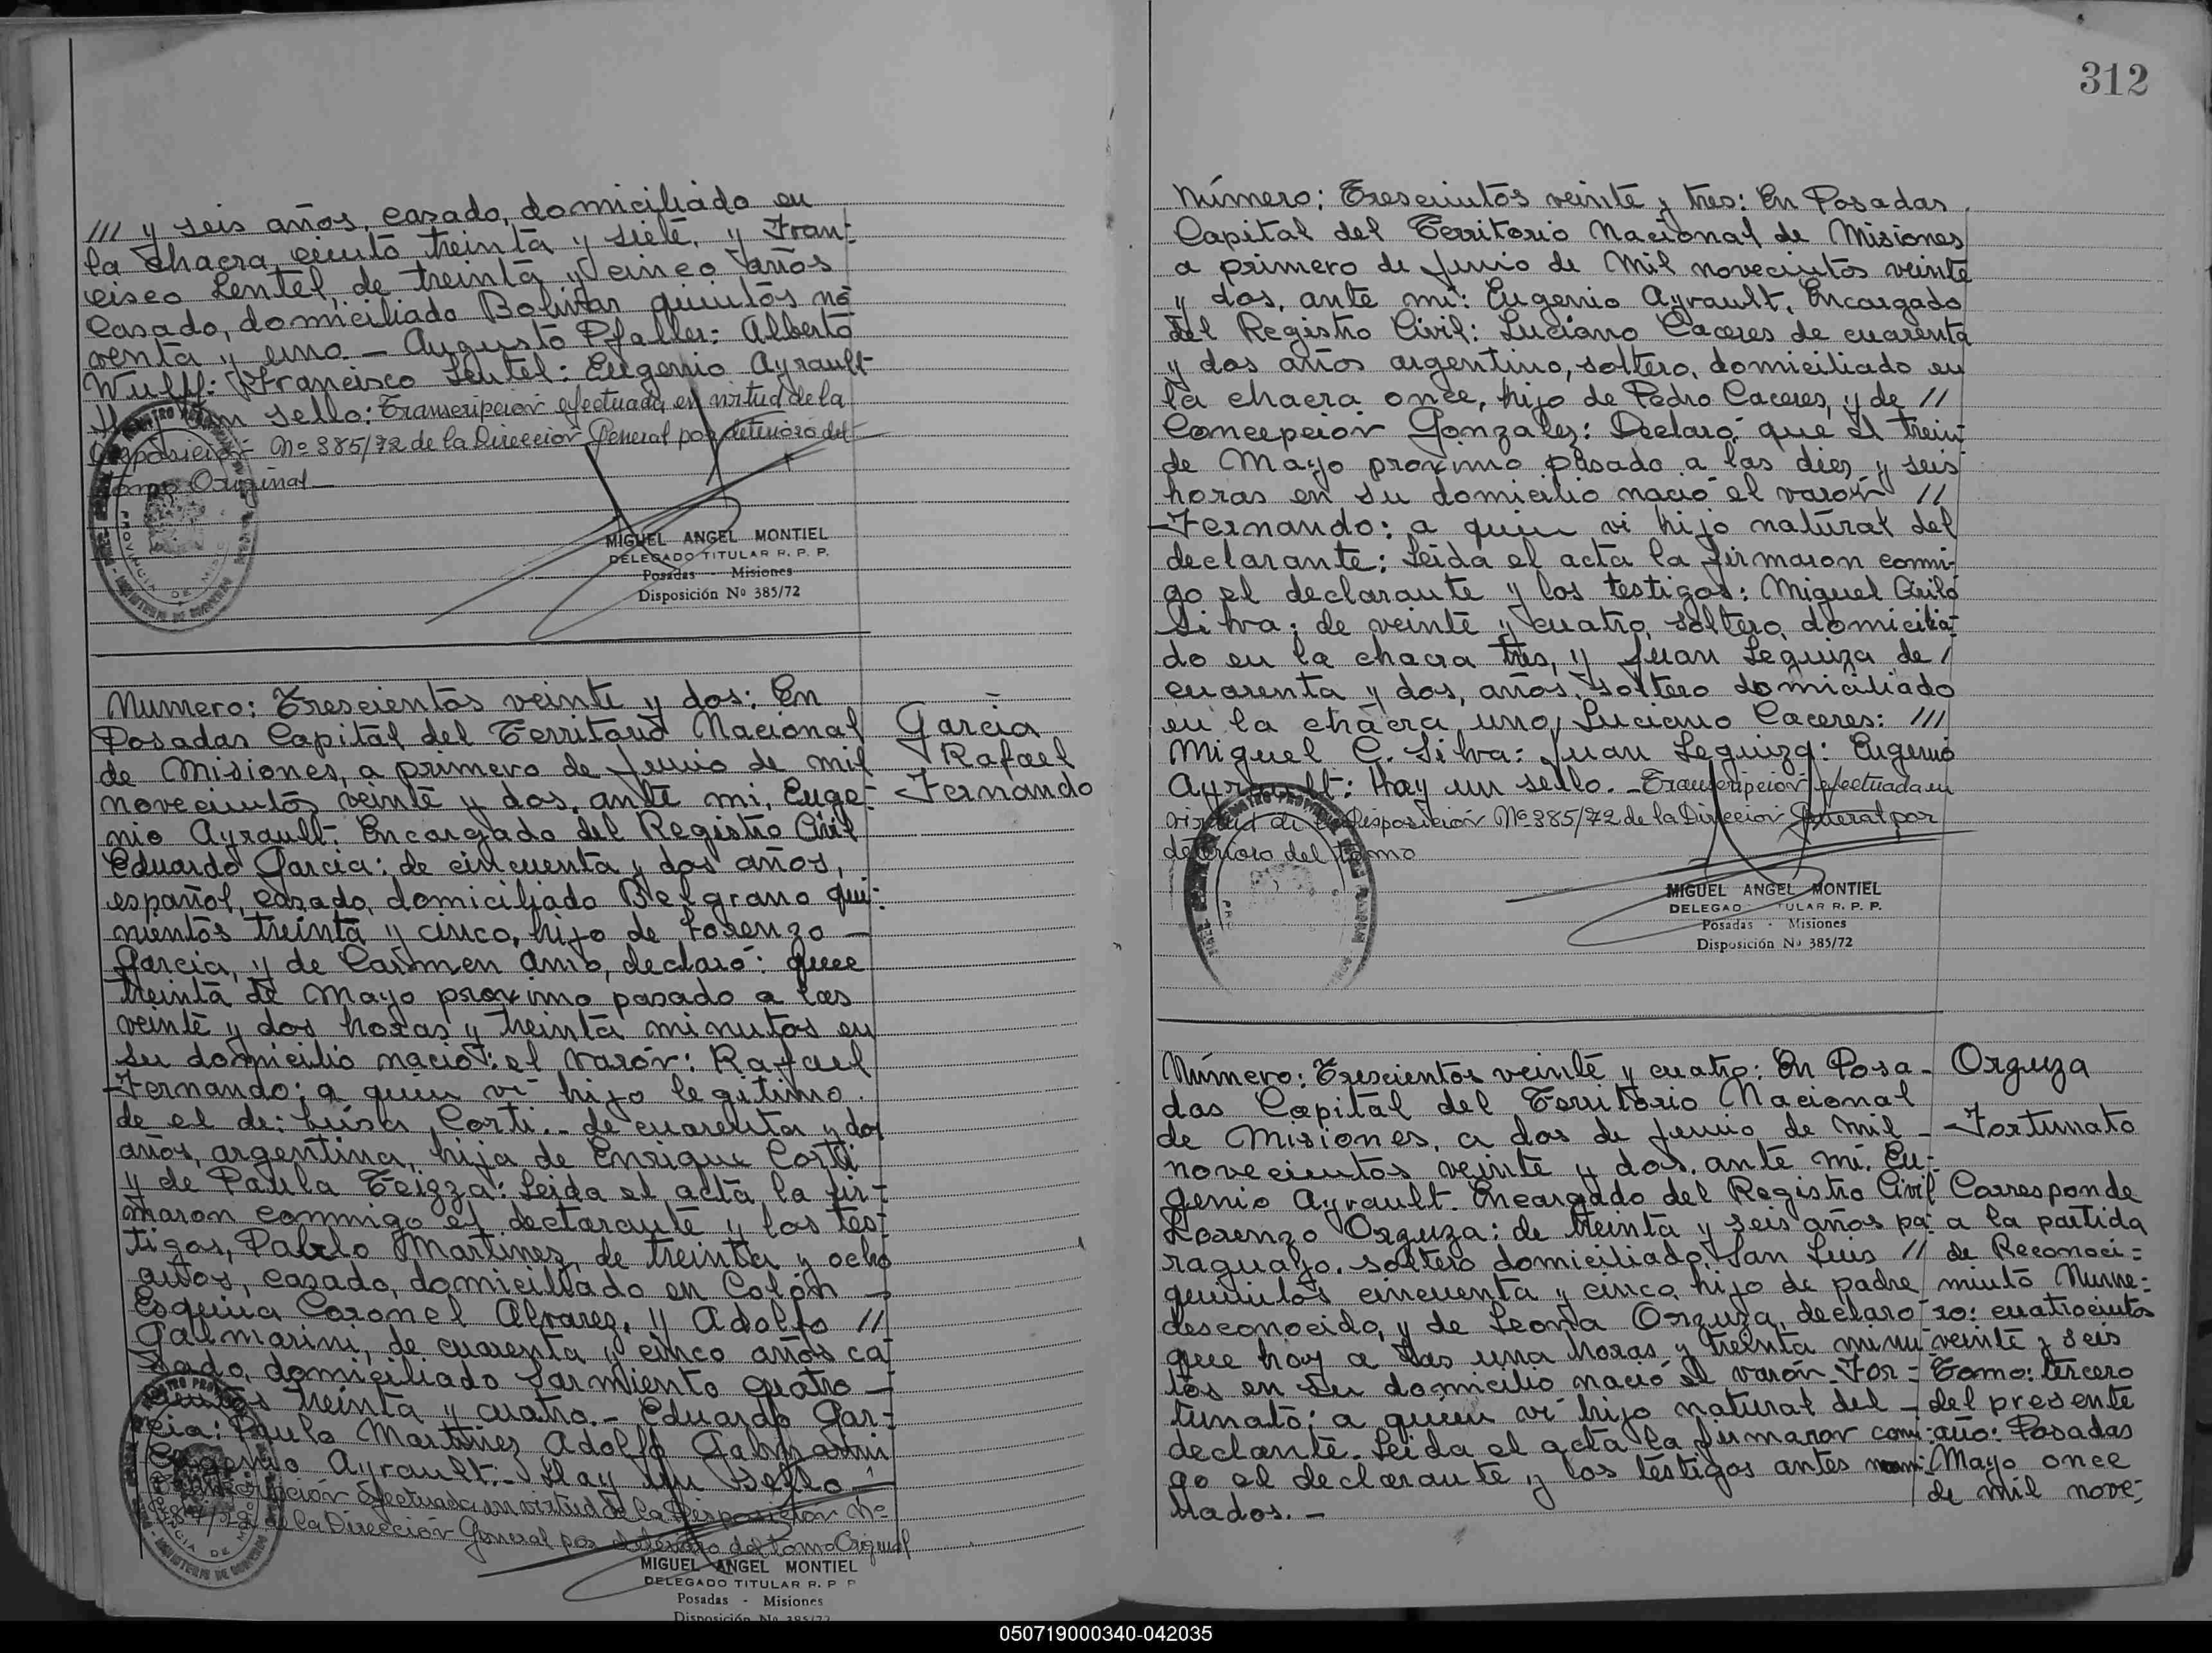 /// y seis años, casado, domiciliado en
la chacra ciento treinta y siete, y Fran-
cisco Lentel, de treinta y cinco años
casado, domiciliado Bolivar quientos no
venta y uno. - Augusto Pfaller: Alberto
Wulff: Francisco Lentel: Eugenio Ayrault
Hay un sello: Transcripcion efectuada en virtud de la
Disposicion Nº 385/72 de la Direccion General por deterioro del
tomo Original
MIGUEL ANGEL MONTIEL
DELEGADO TITULAR R. P. P.
Posadas - Misiones
Disposición Nº 385/72
Numero: Trescientos veinte y dos: En
Posadas Capital del Territorio Nacional
de Misiones, a primero de Junio de mil
novecientos veinte y dos, ante mi, Euge-
nio Ayrault. Encargado del Registro Civil
Eduardo Garcia: de cincuenta y dos años,
español, casado, domiciliado Belgrano qui-
nientos treinta y cinco, hijo de Lorenzo —
Garcia, y de Carmen Amo, declaró: que
treinta de Mayo proximo pasado a las
veinte y dos horas y treinta minutos en
su domicilio nació: el varón: Rafael
Fernando: a quien vi hijo legitimo.
de el de: Luisa Corti.- de cuarenta y dos
años, argentina, hija de Enrique Corti
y de Paula Teizza: Leida el acta la fir-
maron conmigo el declarante y los tes-
tigos, Pablo Martinez, de treinta y ocho
años, casado, domiciliado en Colón —
Esquina Coronel Alvarez, y Adolfo //
Galmarini, de cuarenta y cinco años ca
sado, domiciliado Sarmiento cuatro —
cientos treinta y cuatro. - Eduardo Gar-
cia: Paulo Martinez Adolfo Galmarini
Eugenio Ayrault.- Hay un Sello.-
Transcripción efectuada en virtud de la Disposicion Nº
/72 de la Dirección General por deterioro del tomo Original
MIGUEL ANGEL MONTIEL
DELEGADO TITULAR R. P. P
Posadas - Misiones
Disposición Nº 385/72
Garcia
Rafael
Fernando
312
Número: Trescientos veinte y tres: En Posadas
Capital del Territorio Nacional de Misiones
a primero de Junio de Mil novecientos veinte
y dos, ante mi: Eugenio Ayrault, Encargado
del Registro Civil: Luciano Caceres de cuarenta
y dos años argentino, soltero, domiciliado en
la chacra once, hijo de Pedro Caceres, y de //
Concepcion Gonzalez: Declaró que el trein
de Mayo proximo pasado a las diez y seis
horas en su domicilio nació el varón //
Fernando: a quien vi hijo natural del
declarante: Leida el acta la firmaron conmi-
go el declarante y los testigos: Miguel
Silva: de veinte y cuatro, soltero, domicilia-
do en la chacra tres, y Juan Leguiza de /
cuarenta y dos, años, soltero domiciliado
en la chacra uno, Luciano Caceres: ///
Miguel C. Silva: Juan Leguiza: Eugenio
Ayrault: Hay un sello. - Transcripción efectuada en
virtud de la Disposicion Nº 385/72 de la Direccion General por
deterioro del tomo
MIGUEL ANGEL MONTIEL
DELEGADO TITULAR R. P. P.
Posadas - Misiones
Disposición Nº 385/72
Número: Trescientos veinte y cuatro: En Posa-
das Capital del Territorio Nacional
de Misiones, a dos de Junio de Mil -
novecientos veinte y dos, ante mi. Eu-
genio Ayrault. Encargado del Registro Civil
Lorenzo Orguza: de treinta y seis años pa-
raguayo, soltero domiciliado, San Luis //
quinientos cincuenta y cinco, hijo de padre
desconocido, y de Leona Orguza, declaro
que hoy a las una horas y treinta minu
tos en su domicilio nació el varón For-
tunato: a quien vi hijo natural del -
declante. Leida el acta la firmaron conmi-
go el declarante y los testigos antes nom-
brados. -
Orguza
Fortunato
Corresponde
a la partida
de Reconoci-
miento Nume-
ro: cuatrocientos
veinte y seis
Tomo: tercero
del presente
año: Posadas
Mayo once
de mil nove-
050719000340-042035